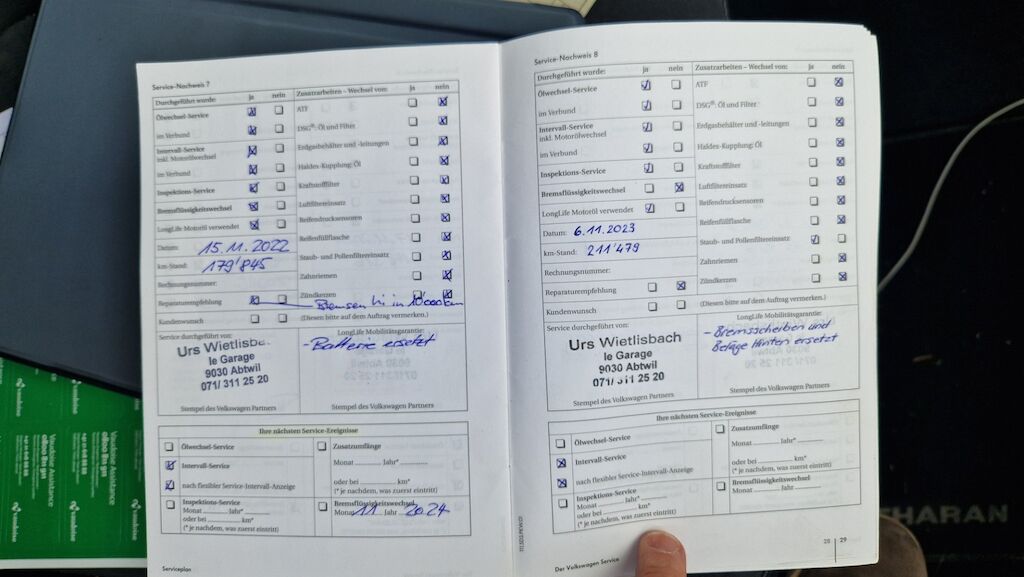 Service-Nachweis 7
Durchgeführt wurde: ja nein Zusatzarbeiten – Wechsel von: ja nein
Ölwechsel-Service
ATF
im Verbund
DSG®: Öl und Filter
Intervall-Service
inkl. Motorölwechsel
Erdgasbehälter und -leitungen
im Verbund
Haldex-Kupplung: Öl
Inspektions-Service
Kraftstofffilter
Bremsflüssigkeitswechsel
Luftfiltereinsatz
LongLife Motoröl verwendet
Reifendrucksensoren
Datum: 15.11.2022
Reifenfüllflasche
km-Stand: 179'845
Staub- und Pollenfiltereinsatz
Rechnungsnummer:
Zahnriemen
Zündkerzen
Reparaturempfehlung
Bremsen hi in 10'000 km
Kundenwunsch
(Diesen bitte auf dem Auftrag vermerken.)
Service durchgeführt von:
LongLife Mobilitätsgarantie:
Urs Wietlisba
le Garage
9030 Abtwil
071/ 311 25 20
- Batterie ersetzt
Stempel des Volkswagen Partners
Stempel des Volkswagen Partners
Ihre nächsten Service-Ereignisse
Ölwechsel-Service
Zusatzumfänge
Intervall-Service
Monat Jahr*
nach flexibler Service-Intervall-Anzeige
oder bei km*
(* je nachdem, was zuerst eintritt)
Inspektions-Service
Monat Jahr*
oder bei km*
(* je nachdem, was zuerst eintritt)
Bremsflüssigkeitswechsel
Monat 11 Jahr 2024
Serviceplan
Service-Nachweis 8
Durchgeführt wurde: ja nein Zusatzarbeiten – Wechsel von: ja nein
Ölwechsel-Service
ATF
im Verbund
DSG®: Öl und Filter
Intervall-Service
inkl. Motorölwechsel
Erdgasbehälter und -leitungen
im Verbund
Haldex-Kupplung: Öl
Inspektions-Service
Kraftstofffilter
Bremsflüssigkeitswechsel
Luftfiltereinsatz
LongLife Motoröl verwendet
Reifendrucksensoren
Datum: 6.11.2023
Reifenfüllflasche
km-Stand: 211'479
Staub- und Pollenfiltereinsatz
Rechnungsnummer:
Zahnriemen
Reparaturempfehlung
Zündkerzen
Kundenwunsch
(Diesen bitte auf dem Auftrag vermerken.)
Service durchgeführt von:
LongLife Mobilitätsgarantie:
Urs Wietlisbach
le Garage
9030 Abtwil
071/ 311 25 20
- Bremsscheiben und
Beläge Hinten ersetzt
Stempel des Volkswagen Partners
Stempel des Volkswagen Partners
Ihre nächsten Service-Ereignisse
Ölwechsel-Service
Zusatzumfänge
Intervall-Service
Monat Jahr*
nach flexibler Service-Intervall-Anzeige
oder bei km*
(* je nachdem, was zuerst eintritt)
Inspektions-Service
Monat Jahr*
oder bei km*
(* je nachdem, was zuerst eintritt)
Bremsflüssigkeitswechsel
Monat Jahr
Der Volkswagen Service
28 29
HARAN
Vaudoise Assistance
0800 811 911
vaudoise